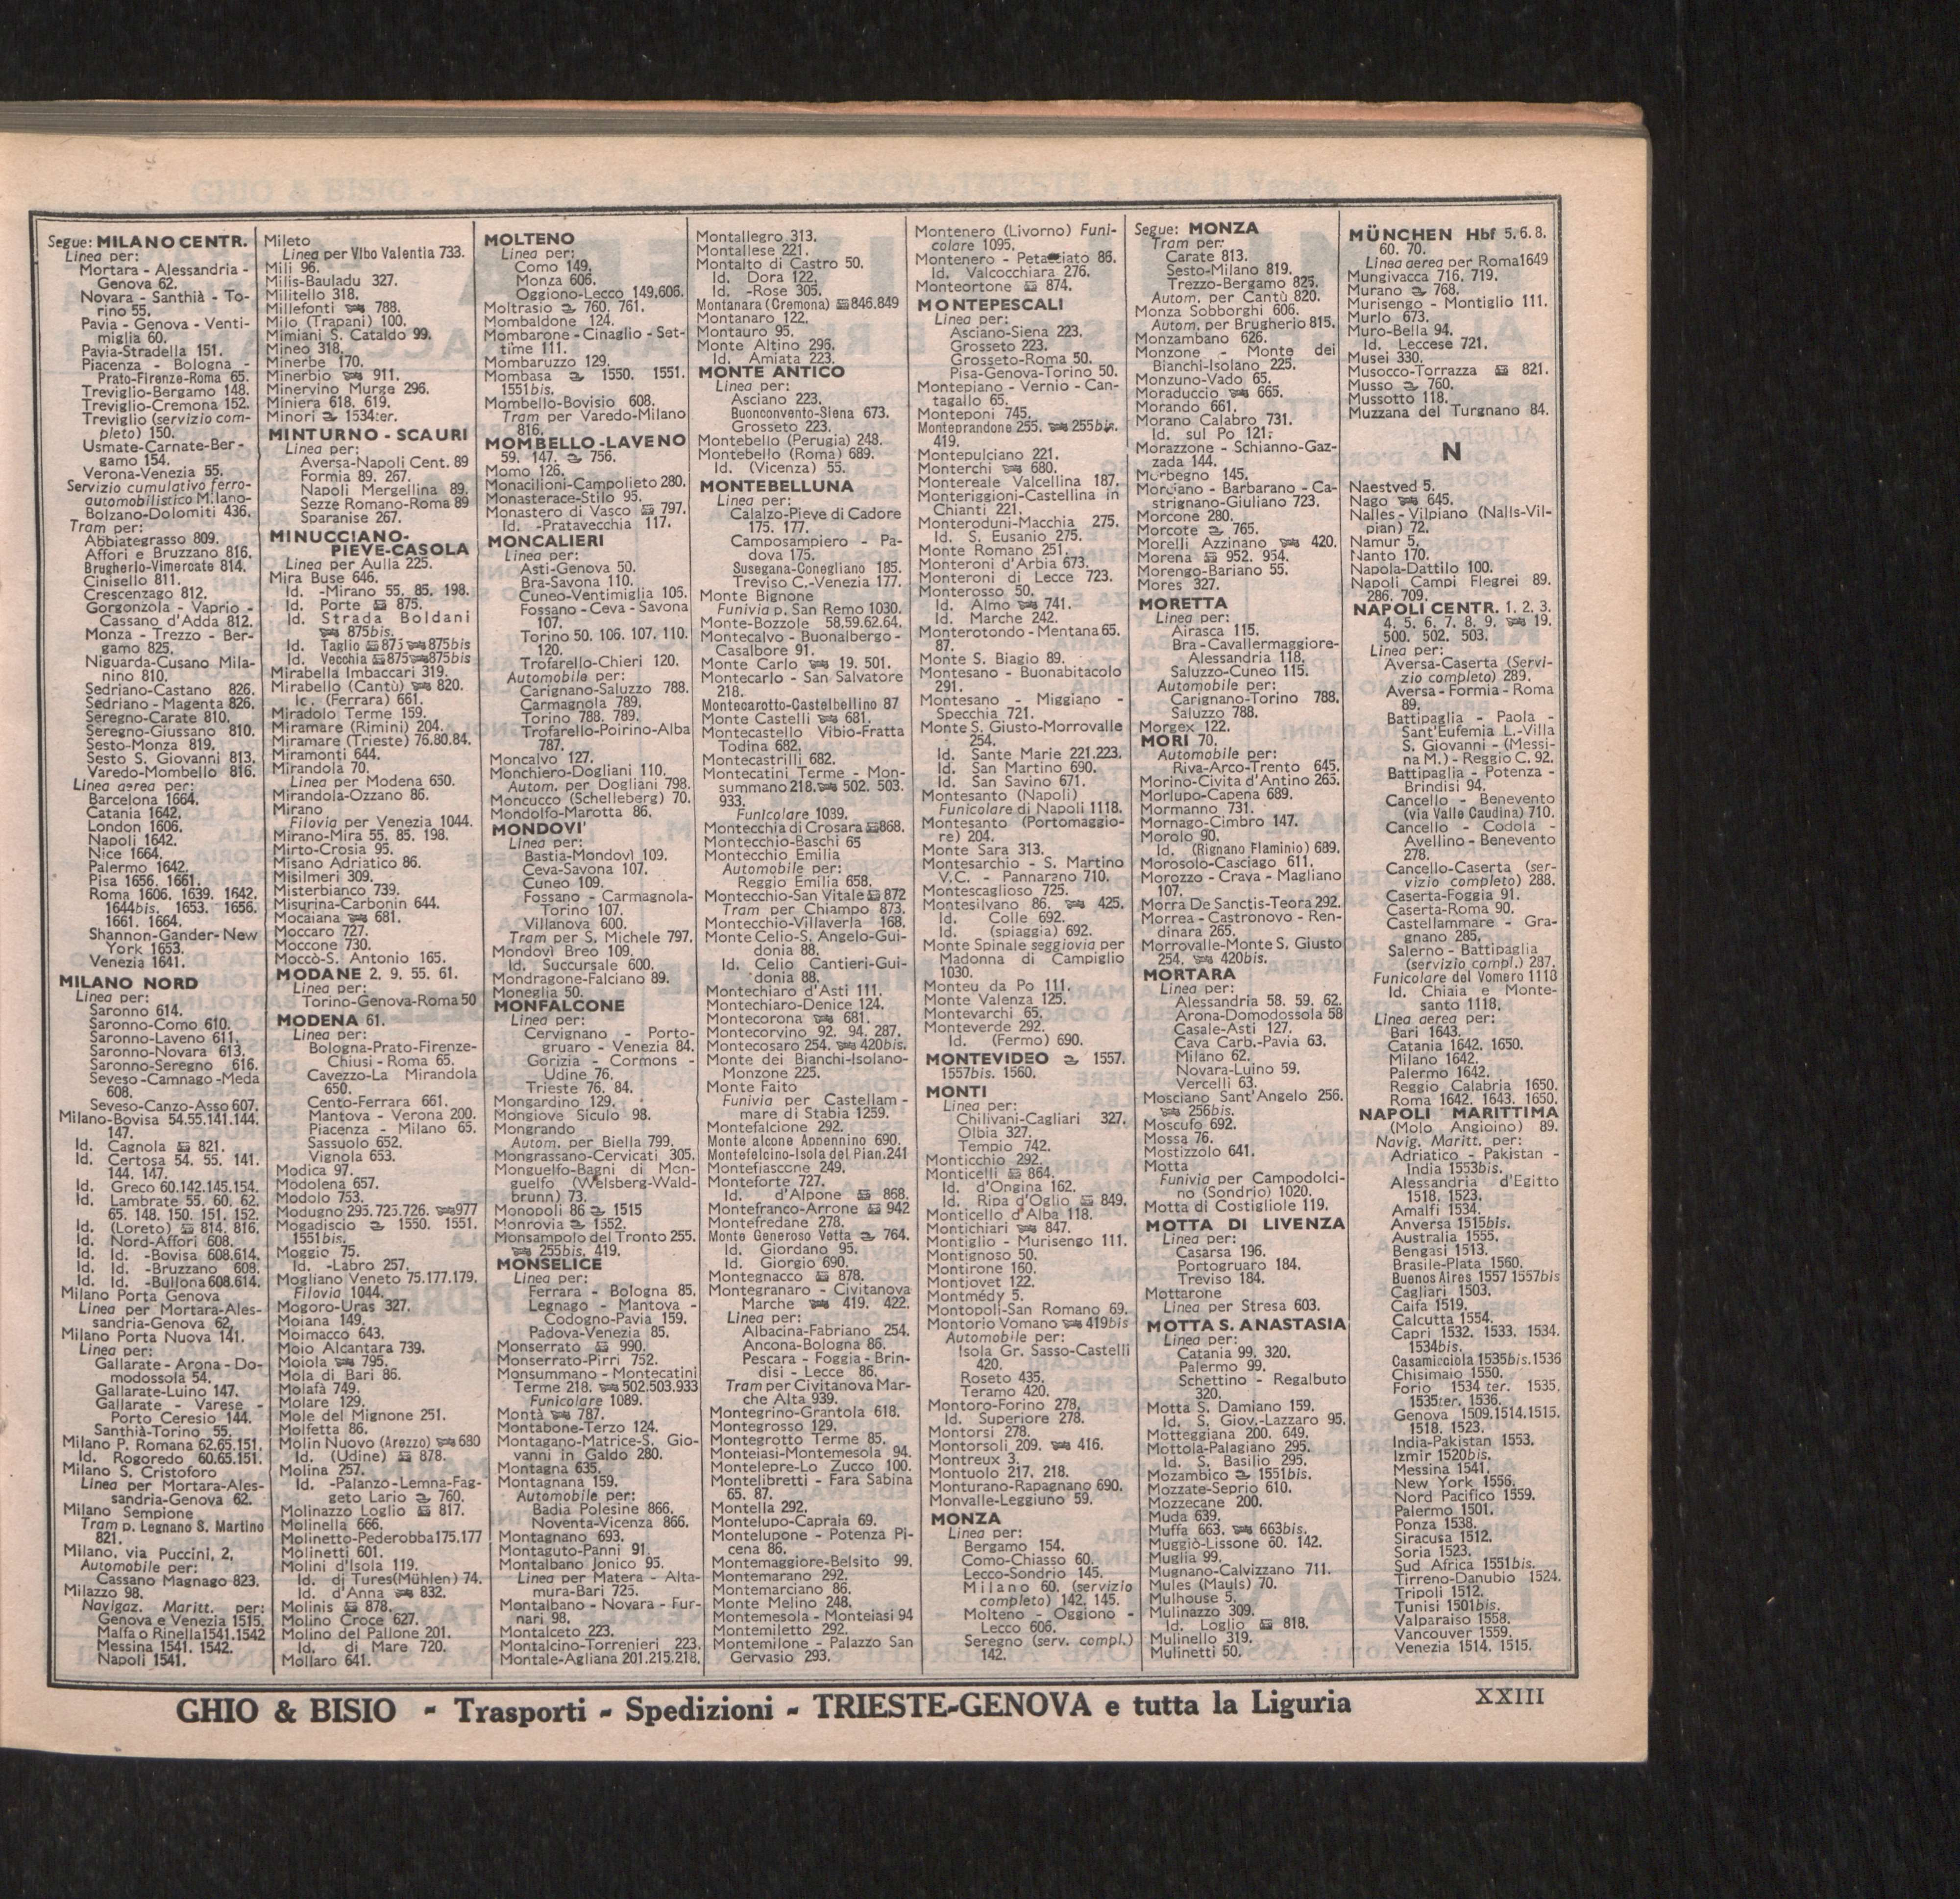 Segue: MILANO CENTR.
Linea per:
Mortara - Alessandria -
Genova 62.
Novara - Santhià - To-
rino 55.
Pavia - Genova - Venti-
miglia 60.
Pavia-Stradella 151.
Piacenza - Bologna -
Prato-Firenze-Roma 65.
Treviglio-Bergamo 148.
Treviglio-Cremona 152.
Treviglio (servizio com-
pleto) 150.
Usmate-Carnate-Ber-
gamo 154.
Verona-Venezia 55.
Servizio cumulativo ferro-
automobilistico Milano-
Bolzano-Dolomiti 436.
Tram per:
Abbiategrasso 809.
Affori e Bruzzano 816.
Brugherio-Vimercate 814.
Cinisello 811.
Crescenzago 812.
Gorgonzola - Vaprio -
Cassano d'Adda 812.
Monza - Trezzo - Ber-
gamo 825.
Niguarda-Cusano Mila-
nino 810.
Sedriano-Castano 826.
Sedriano - Magenta 826.
Seregno-Carate 810.
Seregno-Giussano 810.
Sesto-Monza 819.
Sesto S. Giovanni 813.
Varedo-Mombello 816.
Linea aerea per:
Barcelona 1664.
Catania 1642.
London 1606.
Napoli 1642.
Nice 1664.
Palermo 1642.
Pisa 1656. 1661.
Roma 1606. 1639. 1642.
1644bis. 1653. 1656.
1661. 1664.
Shannon-Gander-New
York 1653.
Venezia 1641.
MILANO NORD
Linea per:
Saronno 614.
Saronno-Como 610.
Saronno-Laveno 611.
Saronno-Novara 613.
Saronno-Seregno 616.
Seveso-Camnago-Meda
608.
Seveso-Canzo-Asso 607.
Milano-Bovisa 54.55.141.144.
147.
Id. Cagnola 821.
Id. Certosa 54. 55. 141.
144. 147.
Id. Greco 60.142.145.154.
Id. Lambrate 55. 60. 62.
65. 148. 150. 151. 152.
Id. (Loreto) 814. 816.
Id. Nord-Affori 608.
Id. Id. -Bovisa 608.614.
Id. Id. -Bruzzano 608.
Id. Id. -Bullona 608.614.
Milano Porta Genova
Linea per Mortara-Ales-
sandria-Genova 62.
Milano Porta Nuova 141.
Linea per:
Gallarate - Arona - Do-
modossola 54.
Gallarate-Luino 147.
Gallarate - Varese -
Porto Ceresio 144.
Santhià-Torino 55.
Milano P. Romana 62.65.151.
Id. Rogoredo 60.65.151.
Milano S. Cristoforo
Linea per Mortara-Ales-
sandria-Genova 62.
Milano Sempione
Tram p. Legnano S. Martino
821.
Milano, via Puccini, 2,
Automobile per:
Cassano Magnago 823.
Milazzo 98.
Navigaz. Maritt. per:
Genova e Venezia 1515.
Malfa o Rinella 1541.1542
Messina 1541. 1542.
Napoli 1541.
Mileto
Linea per Vibo Valentia 733.
Mili 96.
Milis-Bauladu 327.
Militello 318.
Millefonti 788.
Milo (Trapani) 100.
Mimiani S. Cataldo 99.
Mineo 318.
Minerbe 170.
Minerbio 911.
Minervino Murge 296.
Miniera 618. 619.
Minori 1534ter.
MINTURNO - SCAURI
Linea per:
Aversa-Napoli Cent. 89
Formia 89. 267.
Napoli Mergellina 89.
Sezze Romano-Roma 89
Sparanise 267.
MINUCCIANO-
PIEVE-CASOLA
Linea per Aulla 225.
Mira Buse 646.
Id. -Mirano 55. 85. 198.
Id. Porte 875.
Id. Strada Boldani
875bis.
Id. Taglio 875 875bis
Id. Vecchia 875 875bis
Mirabella Imbaccari 319.
Mirabello (Cantù) 820.
Ic. (Ferrara) 661.
Miradolo Terme 159.
Miramare (Rimini) 204.
Miramare (Trieste) 76.80.84.
Miramonti 644.
Mirandola 70.
Linea per Modena 650.
Mirandola-Ozzano 86.
Mirano
Filovia per Venezia 1044.
Mirano-Mira 55. 85. 198.
Mirto-Crosia 95.
Misano Adriatico 86.
Misilmeri 309.
Misterbianco 739.
Misurina-Carbonin 644.
Mocaiana 681.
Moccaro 727.
Moccone 730.
Moccò-S. Antonio 165.
MODANE 2. 9. 55. 61.
Linea per:
Torino-Genova-Roma 50
MODENA 61.
Linea per:
Bologna-Prato-Firenze-
Chiusi - Roma 65.
Cavezzo-La Mirandola
650.
Cento-Ferrara 661.
Mantova - Verona 200.
Piacenza - Milano 65.
Sassuolo 652.
Vignola 653.
Modica 97.
Modolena 657.
Modolo 753.
Modugno 295.725.726. 977
Mogadiscio 1550. 1551.
1551bis.
Moggio 75.
Id. -Labro 257.
Mogliano Veneto 75.177.179.
Filovia 1044.
Mogoro-Uras 327.
Moiana 149.
Moimacco 643.
Moio Alcantara 739.
Moiola 795.
Mola di Bari 86.
Molafà 749.
Molare 129.
Mole del Mignone 251.
Molfetta 86.
Molin Nuovo (Arezzo) 680
Id. (Udine) 878.
Molina 257.
Id. -Palanzo-Lemna-Fag-
geto Lario 760.
Molinazzo Loglio 817.
Molinella 666.
Molinetto-Pederobba 175.177
Molinetti 601.
Molini d'Isola 119.
Id. di Tures(Mühlen) 74.
Id. d'Anna 832.
Molinis 878.
Molino Croce 627.
Molino del Pallone 201.
Id. di Mare 720.
Mollaro 641.
MOLTENO
Linea per:
Como 149.
Monza 606.
Oggiono-Lecco 149.606.
Moltrasio 760. 761.
Mombaldone 124.
Mombarone - Cinaglio - Set-
time 111.
Mombaruzzo 129.
Mombasa 1550. 1551.
1551bis.
Mombello-Bovisio 608.
Tram per Varedo-Milano
816.
MOMBELLO-LAVENO
59. 147. 756.
Momo 126.
Monacilioni-Campolieto 280.
Monasterace-Stilo 95.
Monastero di Vasco 797.
Id. -Pratavecchia 117.
MONCALIERI
Linea per:
Asti-Genova 50.
Bra-Savona 110.
Cuneo-Ventimiglia 106.
Fossano - Ceva - Savona
107.
Torino 50. 106. 107. 110.
120.
Trofarello-Chieri 120.
Automobile per:
Carignano-Saluzzo 788.
Carmagnola 789.
Torino 788. 789.
Trofarello-Poirino-Alba
787.
Moncalvo 127.
Monchiero-Dogliani 110.
Autom. per Dogliani 798.
Moncucco (Schelleberg) 70.
Mondolfo-Marotta 86.
MONDOVI'
Linea per:
Bastia-Mondovì 109.
Ceva-Savona 107.
Cuneo 109.
Fossano - Carmagnola-
Torino 107.
Villanova 600.
Tram per S. Michele 797.
Mondovì Breo 109.
Id. Succursale 600.
Mondragone-Falciano 89.
Moneglia 50.
MONFALCONE
Linea per:
Cervignano - Porto-
gruaro - Venezia 84.
Gorizia - Cormons -
Udine 76.
Trieste 76. 84.
Mongardino 129.
Mongiove Siculo 98.
Mongrando
Autom. per Biella 799.
Mongrassano-Cervicati 305.
Monguelfo-Bagni di Mon-
guelfo (Welsberg-Wald-
brunn) 73.
Monopoli 86 1515
Monrovia 1552.
Monsampolo del Tronto 255.
255bis. 419.
MONSELICE
Linea per:
Ferrara - Bologna 85.
Legnago - Mantova -
Codogno-Pavia 159.
Padova-Venezia 85.
Monserrato 990.
Monserrato-Pirri 752.
Monsummano - Montecatini
Terme 218. 502.503.933
Funicolare 1089.
Montà 787.
Montabone-Terzo 124.
Montagano-Matrice-S. Gio-
vanni in Galdo 280.
Montagna 635.
Montagnana 159.
Automobile per:
Badia Polesine 866.
Noventa-Vicenza 866.
Montagnano 693.
Montaguto-Panni 91.
Montalbano Jonico 95.
Linea per Matera - Alta-
mura-Bari 725.
Montalbano - Novara - Fur-
nari 98.
Montalceto 223.
Montalcino-Torrenieri 223.
Montale-Agliana 201.215.218.
Montallegro 313.
Montallese 221.
Montalto di Castro 50.
Id. Dora 122.
Id. -Rose 305.
Montanara (Cremona) 846.849
Montanaro 122.
Montauro 95.
Monte Altino 296.
Id. Amiata 223.
MONTE ANTICO
Linea per:
Asciano 223.
Buonconvento-Siena 673.
Grosseto 223.
Montebello (Perugia) 248.
Montebello (Roma) 689.
Id. (Vicenza) 55.
MONTEBELLUNA
Linea per:
Calalzo-Pieve di Cadore
175. 177.
Camposampiero - Pa-
dova 175.
Susegana-Conegliano 185.
Treviso C.-Venezia 177.
Monte Bignone
Funivia p. San Remo 1030.
Monte-Bozzole 58.59.62.64.
Montecalvo - Buonalbergo -
Casalbore 91.
Monte Carlo 19. 501.
Montecarlo - San Salvatore
218.
Montecarotto-Castelbellino 87
Monte Castelli 681.
Montecastello Vibio-Fratta
Todina 682.
Montecastrilli 682.
Montecatini Terme - Mon-
summano 218. 502. 503.
933.
Funicolare 1039.
Montecchia di Crosara 868.
Montecchio-Baschi 65
Montecchio Emilia
Automobile per:
Reggio Emilia 658.
Montecchio-San Vitale 872
Tram per Chiampo 873.
Montecchio-Villaverla 168.
Monte Celio-S. Angelo-Gui-
donia 88.
Id. Celio Cantieri-Gui-
donia 88.
Montechiaro d'Asti 111.
Montechiaro-Denice 124.
Montecorona 681.
Montecorvino 92. 94. 287.
Montecosaro 254. 420bis.
Monte dei Bianchi-Isolano-
Monzone 225.
Monte Faito
Funivia per Castellam-
mare di Stabia 1259.
Montefalcione 292.
Monte alcone Appennino 690.
Montefelcino-Isola del Pian.241
Montefiascone 249.
Monteforte 727.
Id. d'Alpone 868.
Montefranco-Arrone 942
Montefredane 278.
Monte Generoso Vetta 764.
Id. Giordano 95.
Id. Giorgio 690.
Montegnacco 878.
Montegranaro - Civitanova
Marche 419. 422.
Linea per:
Albacina-Fabriano 254.
Ancona-Bologna 86.
Pescara - Foggia - Brin-
disi - Lecce 86.
Tram per Civitanova Mar-
che Alta 939.
Montegrino-Grantola 618.
Montegrosso 129.
Montegrotto Terme 85.
Monteiasi-Montemesola 94.
Montelepre-Lo Zucco 100.
Montelibretti - Fara Sabina
65. 87.
Montella 292.
Montelupo-Capraia 69.
Montelupone - Potenza Pi-
cena 86.
Montemaggiore-Belsito 99.
Montemarano 292.
Montemarciano 86.
Monte Melino 248.
Montemesola - Monteiasi 94
Montemiletto 292.
Montemilone - Palazzo San
Gervasio 293.
Montenero (Livorno) Funi-
colare 1095.
Montenero - Petacciato 86.
Id. Valcocchiara 276.
Monteortone 874.
MONTEPESCALI
Linea per:
Asciano-Siena 223.
Grosseto 223.
Grosseto-Roma 50.
Pisa-Genova-Torino 50.
Montepiano - Vernio - Can-
tagallo 65.
Monteponi 745.
Monteprandone 255. 255bis.
419.
Montepulciano 221.
Monterchi 680.
Montereale Valcellina 187.
Monteriggioni-Castellina in
Chianti 221.
Monteroduni-Macchia 275.
Id. S. Eusanio 275.
Monte Romano 251.
Monteroni d'Arbia 673.
Monteroni di Lecce 723.
Monterosso 50.
Id. Almo 741.
Id. Marche 242.
Monterotondo - Mentana 65.
87.
Monte S. Biagio 89.
Montesano - Buonabitacolo
291.
Montesano - Miggiano -
Specchia 721.
Monte S. Giusto-Morrovalle
254.
Id. Sante Marie 221.223.
Id. San Martino 690.
Id. San Savino 671.
Montesanto (Napoli)
Funicolare di Napoli 1118.
Montesanto (Portomaggio-
re) 204.
Monte Sara 313.
Montesarchio - S. Martino
V.C. - Pannarano 710.
Montescaglioso 725.
Montesilvano 86. 425.
Id. Colle 692.
Id. (spiaggia) 692.
Monte Spinale seggiovia per
Madonna di Campiglio
1030.
Monteu da Po 111.
Monte Valenza 125.
Montevarchi 65.
Monteverde 292.
Id. (Fermo) 690.
MONTEVIDEO 1557.
1557bis. 1560.
MONTI
Linea per:
Chilivani-Cagliari 327.
Olbia 327.
Tempio 742.
Monticchio 292.
Monticelli 864.
Id. d'Ongina 162.
Id. Ripa d'Oglio 849.
Monticello d'Alba 118.
Montichiari 847.
Montiglio - Murisengo 111.
Montignoso 50.
Montirone 160.
Montjovet 122.
Montmédy 5.
Montopoli-San Romano 69.
Montorio Vomano 419bis
Automobile per:
Isola Gr. Sasso-Castelli
420.
Roseto 435.
Teramo 420.
Montoro-Forino 278.
Id. Superiore 278.
Montorsi 278.
Montorsoli 209. 416.
Montreux 3.
Montuolo 217. 218.
Monturano-Rapagnano 690.
Monvalle-Leggiuno 59.
MONZA
Linea per:
Bergamo 154.
Como-Chiasso 60.
Lecco-Sondrio 145.
Milano 60. (servizio
completo) 142. 145.
Molteno - Oggiono -
Lecco 606.
Seregno (serv. compl.)
142.
Segue: MONZA
Tram per:
Carate 813.
Sesto-Milano 819.
Trezzo-Bergamo 825.
Autom. per Cantù 820.
Monza Sobborghi 606.
Autom. per Brugherio 815.
Monzambano 626.
Monzone - Monte dei
Bianchi-Isolano 225.
Monzuno-Vado 65.
Moraduccio 665.
Morando 661.
Morano Calabro 731.
Id. sul Po 121.
Morazzone - Schianno-Gaz-
zada 144.
Morbegno 145.
Morciano - Barbarano - Ca-
strignano-Giuliano 723.
Morcone 280.
Morcote 765.
Morelli Azzinano 420.
Morena 952. 954.
Morengo-Bariano 55.
Mores 327.
MORETTA
Linea per:
Airasca 115.
Bra-Cavallermaggiore-
Alessandria 118.
Saluzzo-Cuneo 115.
Automobile per:
Carignano-Torino 788.
Saluzzo 788.
Morgex 122.
MORI 70.
Automobile per:
Riva-Arco-Trento 645.
Morino-Civita d'Antino 265.
Morlupo-Capena 689.
Mormanno 731.
Mornago-Cimbro 147.
Morolo 90.
Id. (Rignano Flaminio) 689.
Morosolo-Casciago 611.
Morozzo - Crava - Magliano
107.
Morra De Sanctis-Teora 292.
Morrea - Castronovo - Ren-
dinara 265.
Morrovalle-Monte S. Giusto
254. 420bis.
MORTARA
Linea per:
Alessandria 58. 59. 62.
Arona-Domodossola 58
Casale-Asti 127.
Cava Carb.-Pavia 63.
Milano 62.
Novara-Luino 59.
Vercelli 63.
Mosciano Sant'Angelo 256.
256bis.
Moscufo 692.
Mossa 76.
Mostizzolo 641.
Motta
Funivia per Campodolci-
no (Sondrio) 1020.
Motta di Costigliole 119.
MOTTA DI LIVENZA
Linea per:
Casarsa 196.
Portogruaro 184.
Treviso 184.
Mottarone
Linea per Stresa 603.
MOTTA S. ANASTASIA
Linea per:
Catania 99. 320.
Palermo 99.
Schettino - Regalbuto
320.
Motta S. Damiano 159.
Id. S. Giov.-Lazzaro 95.
Motteggiana 200. 649.
Mottola-Palagiano 295.
Id. S. Basilio 295.
Mozambico 1551bis.
Mozzate-Seprio 610.
Mozzecane 200.
Muda 639.
Muffa 663. 663bis.
Muggiò-Lissone 60. 142.
Muglia 99.
Mugnano-Calvizzano 711.
Mules (Mauls) 70.
Mulhouse 5.
Mulinazzo 309.
Id. Loglio 818.
Mulinello 319.
Mulinetti 50.
MÜNCHEN Hbf 5.6.8.
60. 70.
Linea aerea per Roma 1649
Mungivacca 716. 719.
Murano 768.
Murisengo - Montiglio 111.
Murlo 673.
Muro-Bella 94.
Id. Leccese 721.
Musei 330.
Musocco-Torrazza 821.
Musso 760.
Mussotto 118.
Muzzana del Turgnano 84.
N
Naestved 5.
Nago 645.
Nalles - Vilpiano (Nalls-Vil-
pian) 72.
Namur 5.
Nanto 170.
Napola-Dattilo 100.
Napoli Campi Flegrei 89.
286. 709.
NAPOLI CENTR. 1. 2. 3.
4. 5. 6. 7. 8. 9. 19.
500. 502. 503.
Linea per:
Aversa-Caserta (Servi-
zio completo) 289.
Aversa - Formia - Roma
89.
Battipaglia - Paola -
Sant'Eufemia L.-Villa
S. Giovanni - (Messi-
na M.) - Reggio C. 92.
Battipaglia - Potenza -
Brindisi 94.
Cancello - Benevento
(via Valle Caudina) 710.
Cancello - Codola -
Avellino - Benevento
278.
Cancello-Caserta (ser-
vizio completo) 288.
Caserta-Foggia 91.
Caserta-Roma 90.
Castellammare - Gra-
gnano 285.
Salerno - Battipaglia
(servizio compl.) 287.
Funicolare del Vomero 1118
Id. Chiaia e Monte-
santo 1118.
Linea aerea per:
Bari 1643.
Catania 1642. 1650.
Milano 1642.
Palermo 1642.
Reggio Calabria 1650.
Roma 1642. 1643. 1650.
NAPOLI MARITTIMA
(Molo Angioino) 89.
Navig. Maritt. per:
Adriatico - Pakistan -
India 1553bis.
Alessandria d'Egitto
1518. 1523.
Amalfi 1534.
Anversa 1515bis.
Australia 1555.
Bengasi 1513.
Brasile-Plata 1560.
Buenos Aires 1557 1557bis
Cagliari 1503.
Caifa 1519.
Calcutta 1554.
Capri 1532. 1533. 1534.
1534bis.
Casamicciola 1535bis.1536
Chisimaio 1550.
Forio 1534 ter. 1535.
1535ter. 1536.
Genova 1509.1514.1515.
1518. 1523.
India-Pakistan 1553.
Izmir 1520bis.
Messina 1541.
New York 1556.
Nord Pacifico 1559.
Palermo 1501.
Ponza 1538.
Siracusa 1512.
Soria 1523.
Sud Africa 1551bis.
Tirreno-Danubio 1524.
Tripoli 1512.
Tunisi 1501bis.
Valparaiso 1558.
Vancouver 1559.
Venezia 1514. 1515.
GHIO & BISIO - Trasporti - Spedizioni - TRIESTE-GENOVA e tutta la Liguria
XXIII